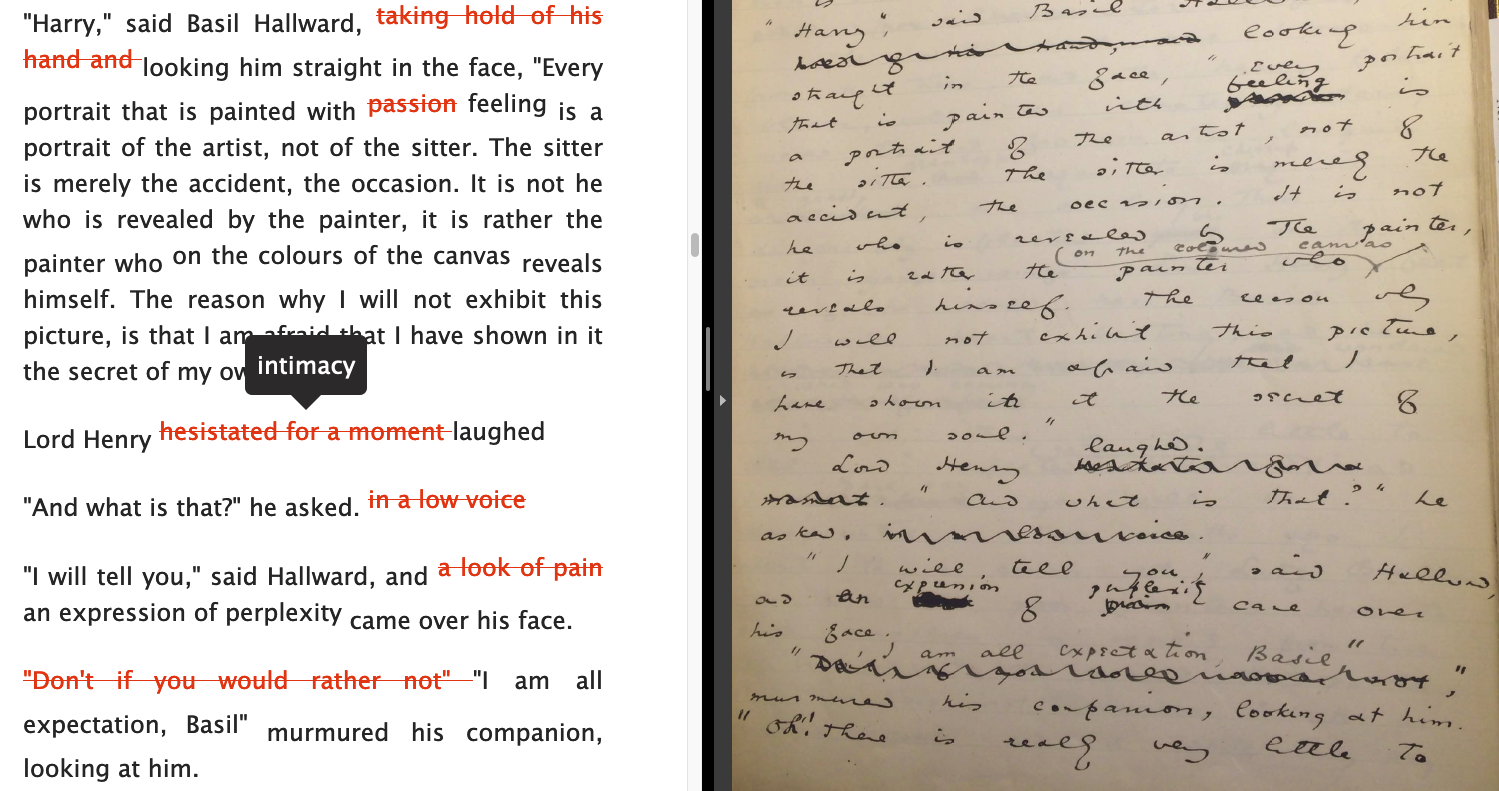 "Harry," said Basil Hallward, taking hold of his
hand and looking him straight in the face, "Every
portrait that is painted with passion feeling is a
portrait of the artist, not of the sitter. The sitter
is merely the accident, the occasion. It is not he
who is revealed by the painter, it is rather the
painter who on the colours of the canvas reveals
himself. The reason why I will not exhibit this
picture, is that I am afraid that I have shown in it
the secret of my ow
intimacy
Lord Henry hesistated for a moment laughed
"And what is that?" he asked. in a low voice
"I will tell you," said Hallward, and a look of pain
an expression of perplexity came over his face.
"Don't if you would rather not" "I am all
expectation, Basil" murmured his companion,
looking at him.
"Harry", said Basil
hold of his hand, and looking him
straight in the face, "Every portrait
that is painted with feeling is
a portrait of the artist, not of
the sitter. The sitter is merely the
accident, the occasion. It is not
he who is revealed by the painter,
on the coloured canvas
it is rather the painter who
reveals himself. The reason why
I will not exhibit this picture,
is that I am afraid that I
have shown in it the secret of
my own soul."
laughed.
Lord Henry hesitated for a
moment. "And what is that?" he
asked. in a low voice.
"I will tell you," said Hallward,
expression perplexity
and an of pain came over
his face.
"I am all expectation, Basil"
"Don't if you would rather not",
murmured his companion, looking at him.
"Oh! There is really very little to